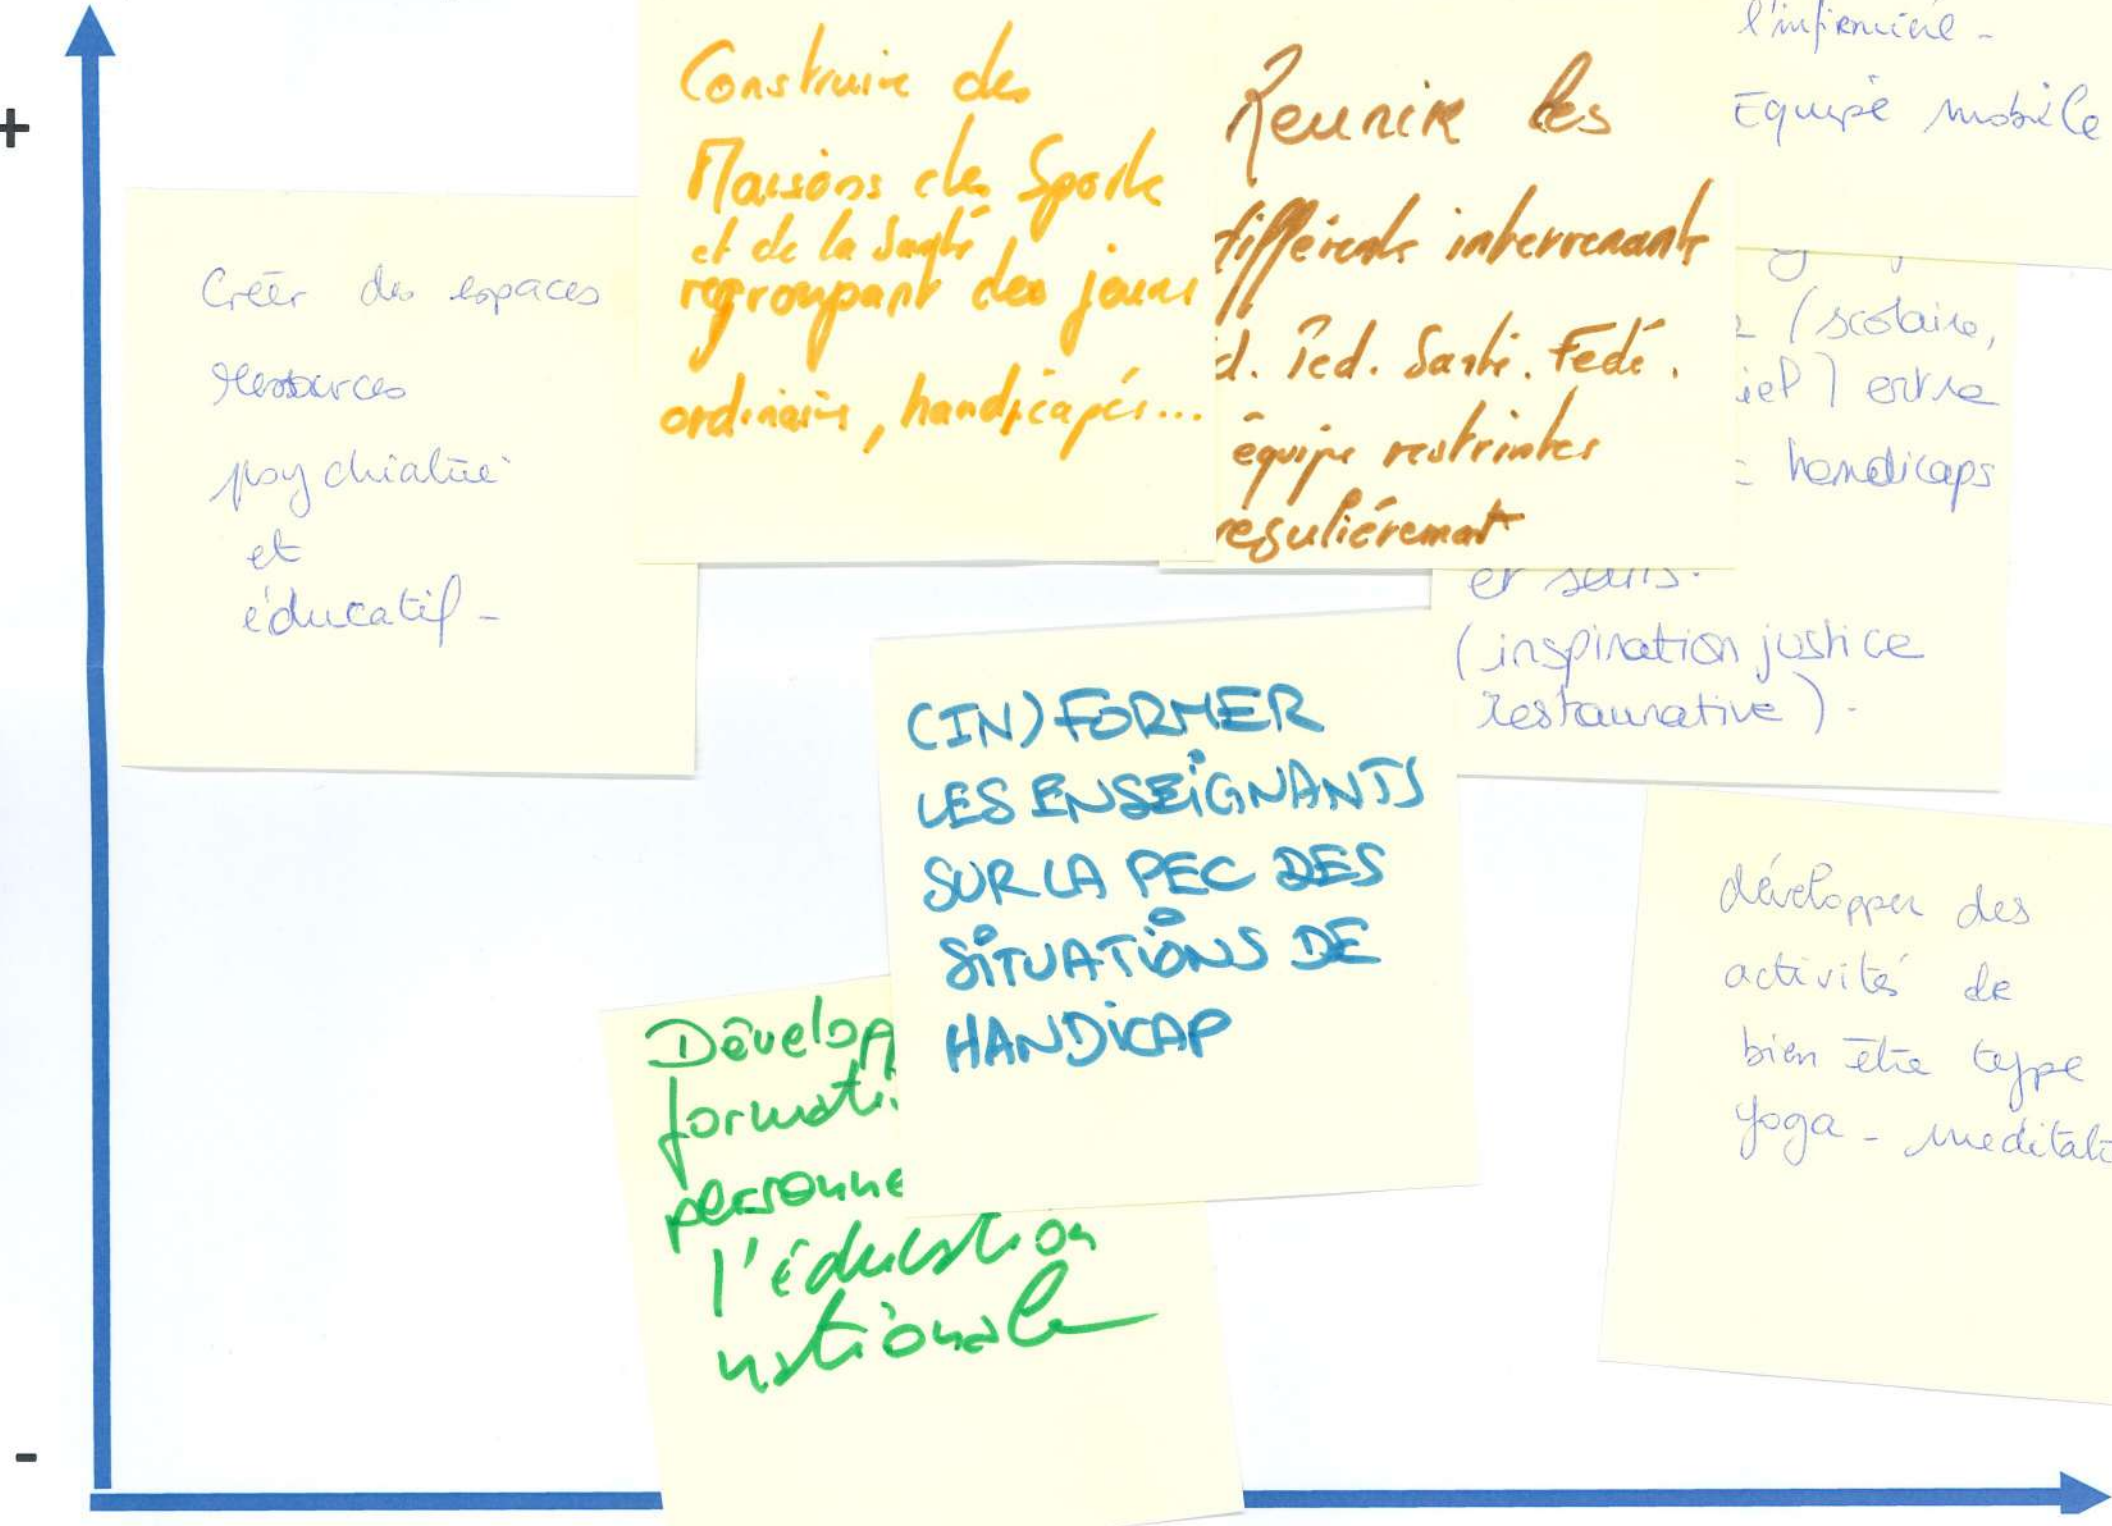 +
Créer des espaces
ressources
psychiatrie
et
éducatif -
Construire des
Maisons des Sports
et de la Santé
regroupant des jeunes
ordinaires, handicapés...
Reunir les
différents intervenants
d. Ped. Santé. Fedé.
équipe restrintes
regulièrement
l'infirmière -
Equipe mobile
(scolaire,
iel) entre
handicaps
et sens.
(inspiration justice
restaurative).
(IN)FORMER
LES ENSEIGNANTS
SUR LA PEC DES
SITUATIONS DE
HANDICAP
Dévelop
formati
personne
l'éducation
nationale
développer des
activités de
bien être type
yoga - meditat
-